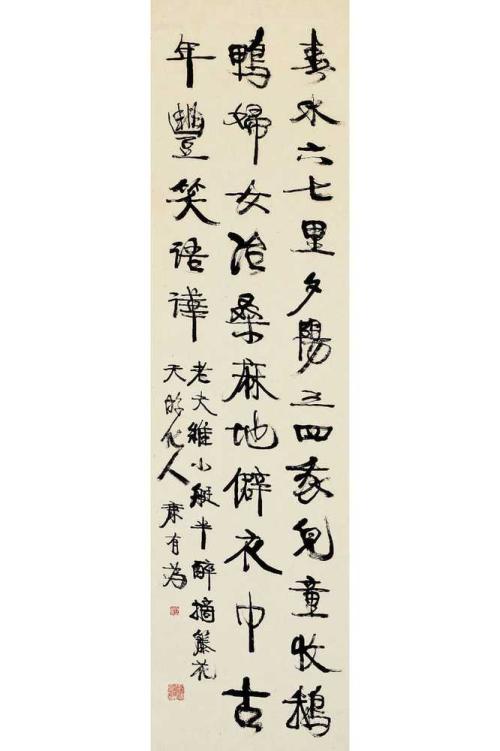 春水六七里夕陽三四家兒童牧鵝
鴨婦女治桑麻地僻衣巾古
年豐笑語譁
老夫維小艇半醉摘藤花
天游化人 康有為